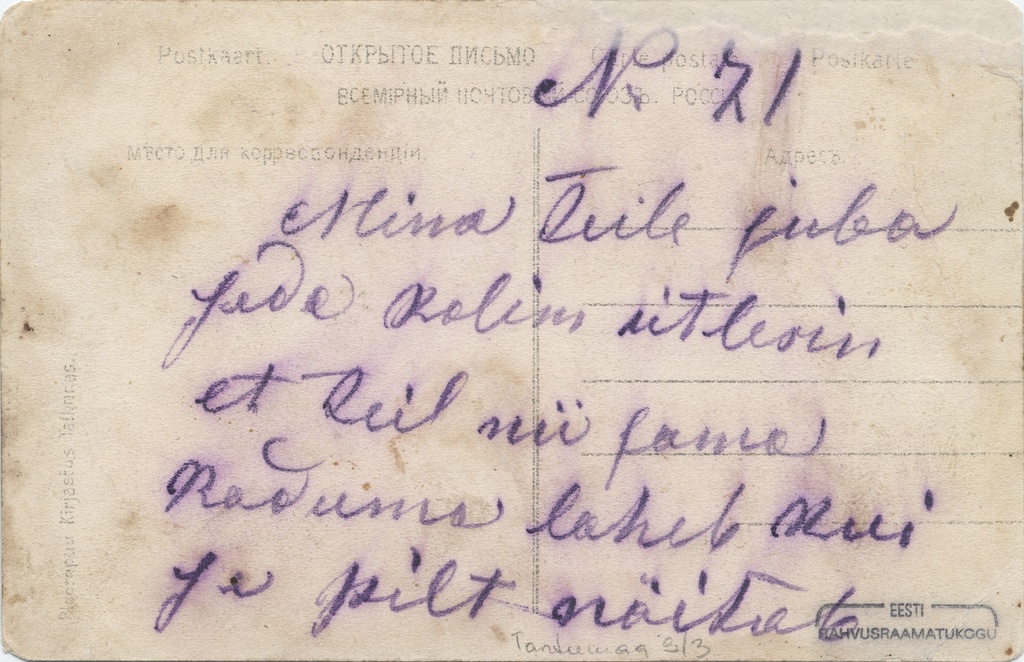 Postkaart. ОТКРЫТОЕ ПИСЬМО Carte postale Postkarte
ВСЕМІРНЫЙ ПОЧТОВЫЙ СОЮЗЪ. РОССІЯ
№ 71
Мѣсто для корреспонденціи. Адресъ.
Mina Teile juba
seda kolim ütlesin
et teil nii sama
kaduma laheb kui
se pilt näitab
Kirjastus Tallinnas.
EESTI
RAHVUSRAAMATUKOGU
3/3